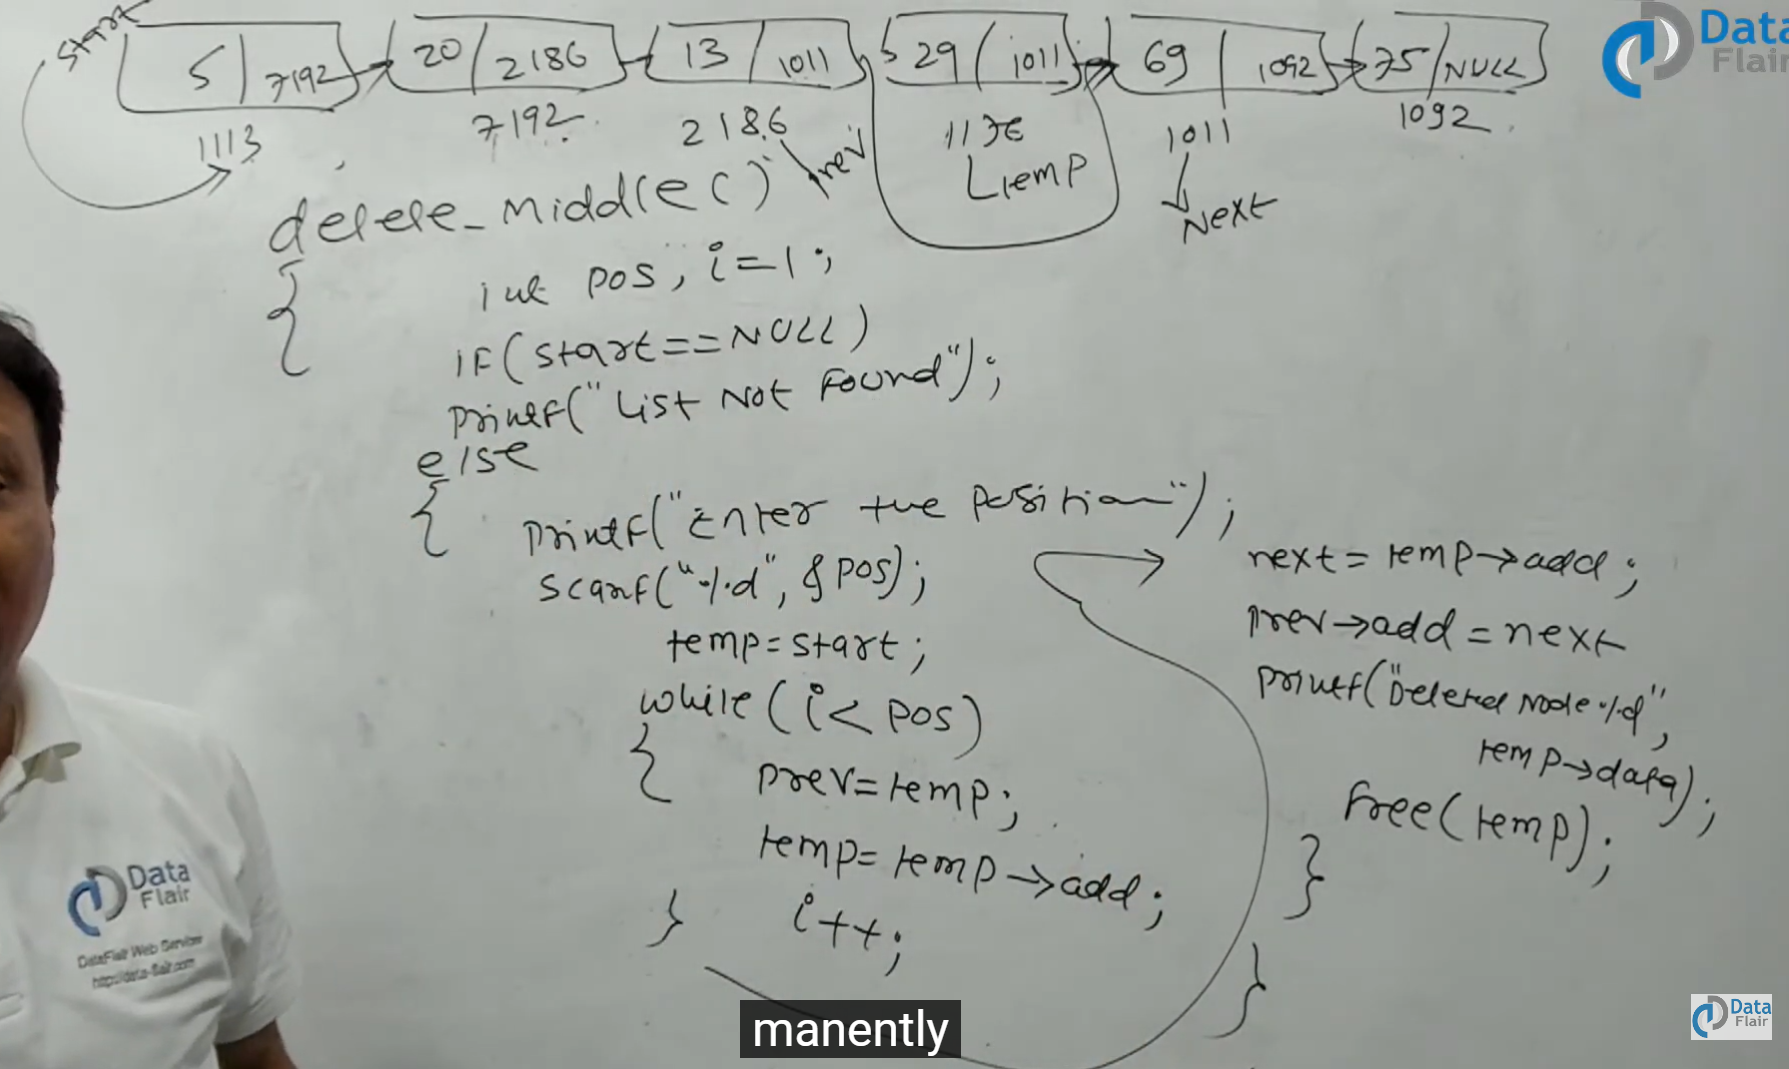 start
5 | 7192
20 | 2186
13 | 1011
29 | 1011
69 | 1092
75 | NULL
1113
7192
2186
1011
1092
prev
temp
Next
delete_middle()
{
int pos, i=1;
if(start==NULL)
printf("List Not Found");
else
{
printf("Enter the position");
scanf("%d", &pos);
temp=start;
while(i<pos)
{
prev=temp;
temp=temp→add;
i++;
}
next=temp→add;
prev→add=next
printf("Deleted Node %d",
temp→data);
free(temp);
}
}
Data
Flair
Data
Flair
DataFlair Web Services
http://data-flair.com
Data
Flair
manently